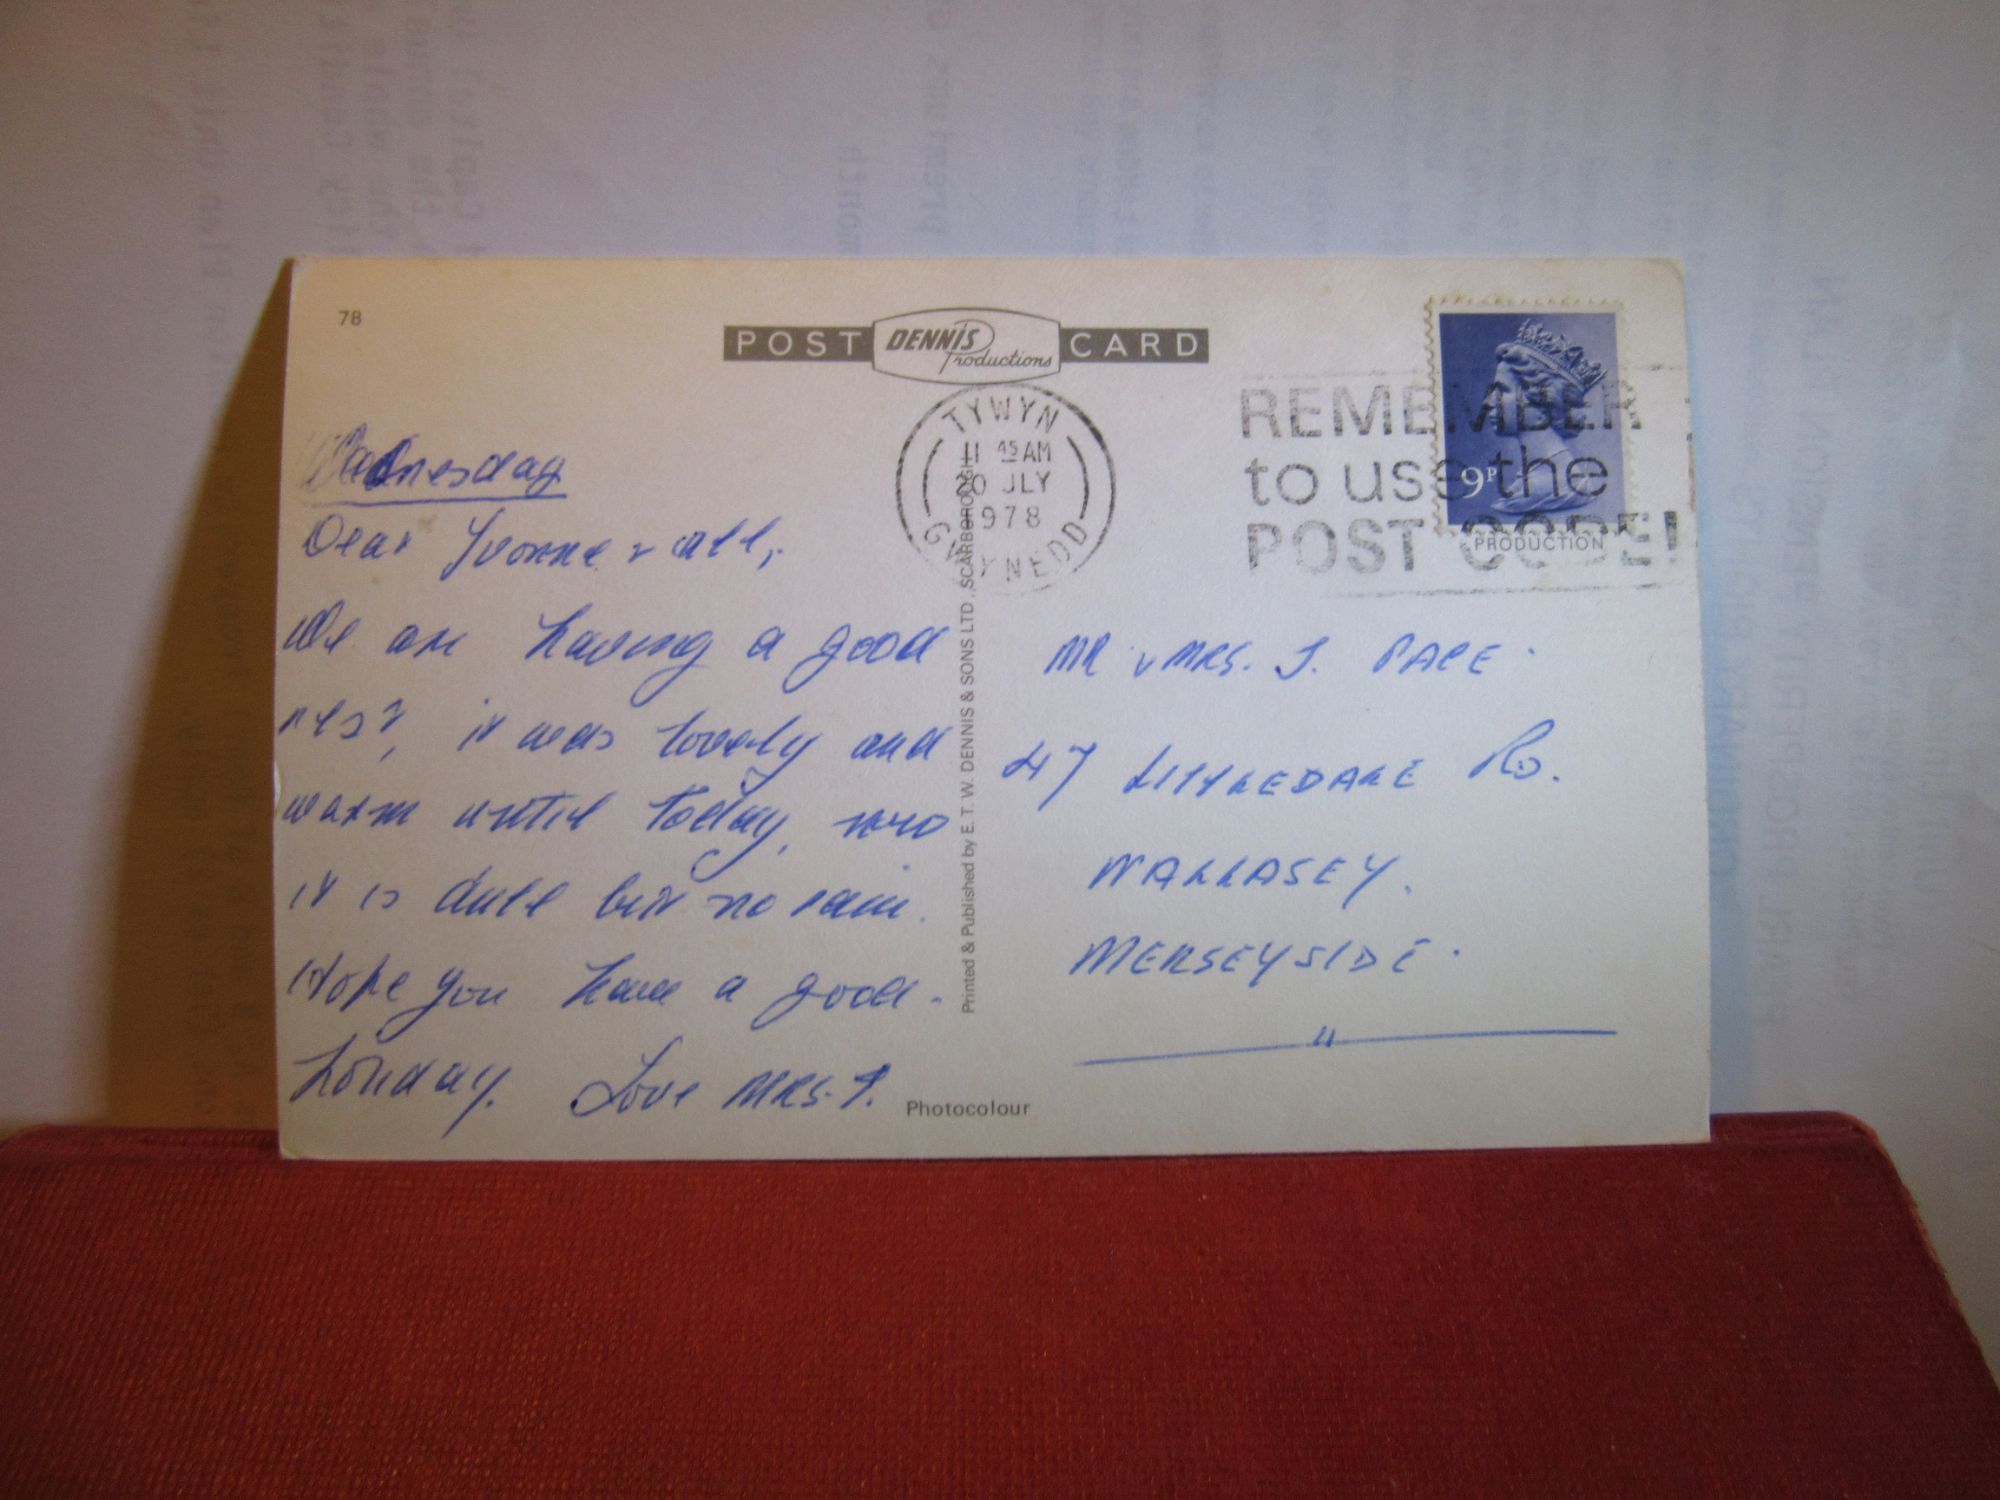 78
POST DENNIS Productions CARD
TYWYN
11 45 AM
20 JLY
1978
GWYNEDD
REMEMBER
to use the
POST CODE!
9P
PRODUCTION
Wednesday
Dear Yvonne & all,
We are having a good
rest, it was lovely and
warm until today, now
it is dull but no rain.
Hope you have a good.
holiday. Love MRS. P.
Printed & Published by E. T. W. DENNIS & SONS LTD., SCARBOROUGH
MR & MRS. J. PAPE.
47 LITTLEDALE RD.
WALLASEY.
MERSEYSIDE.
Photocolour